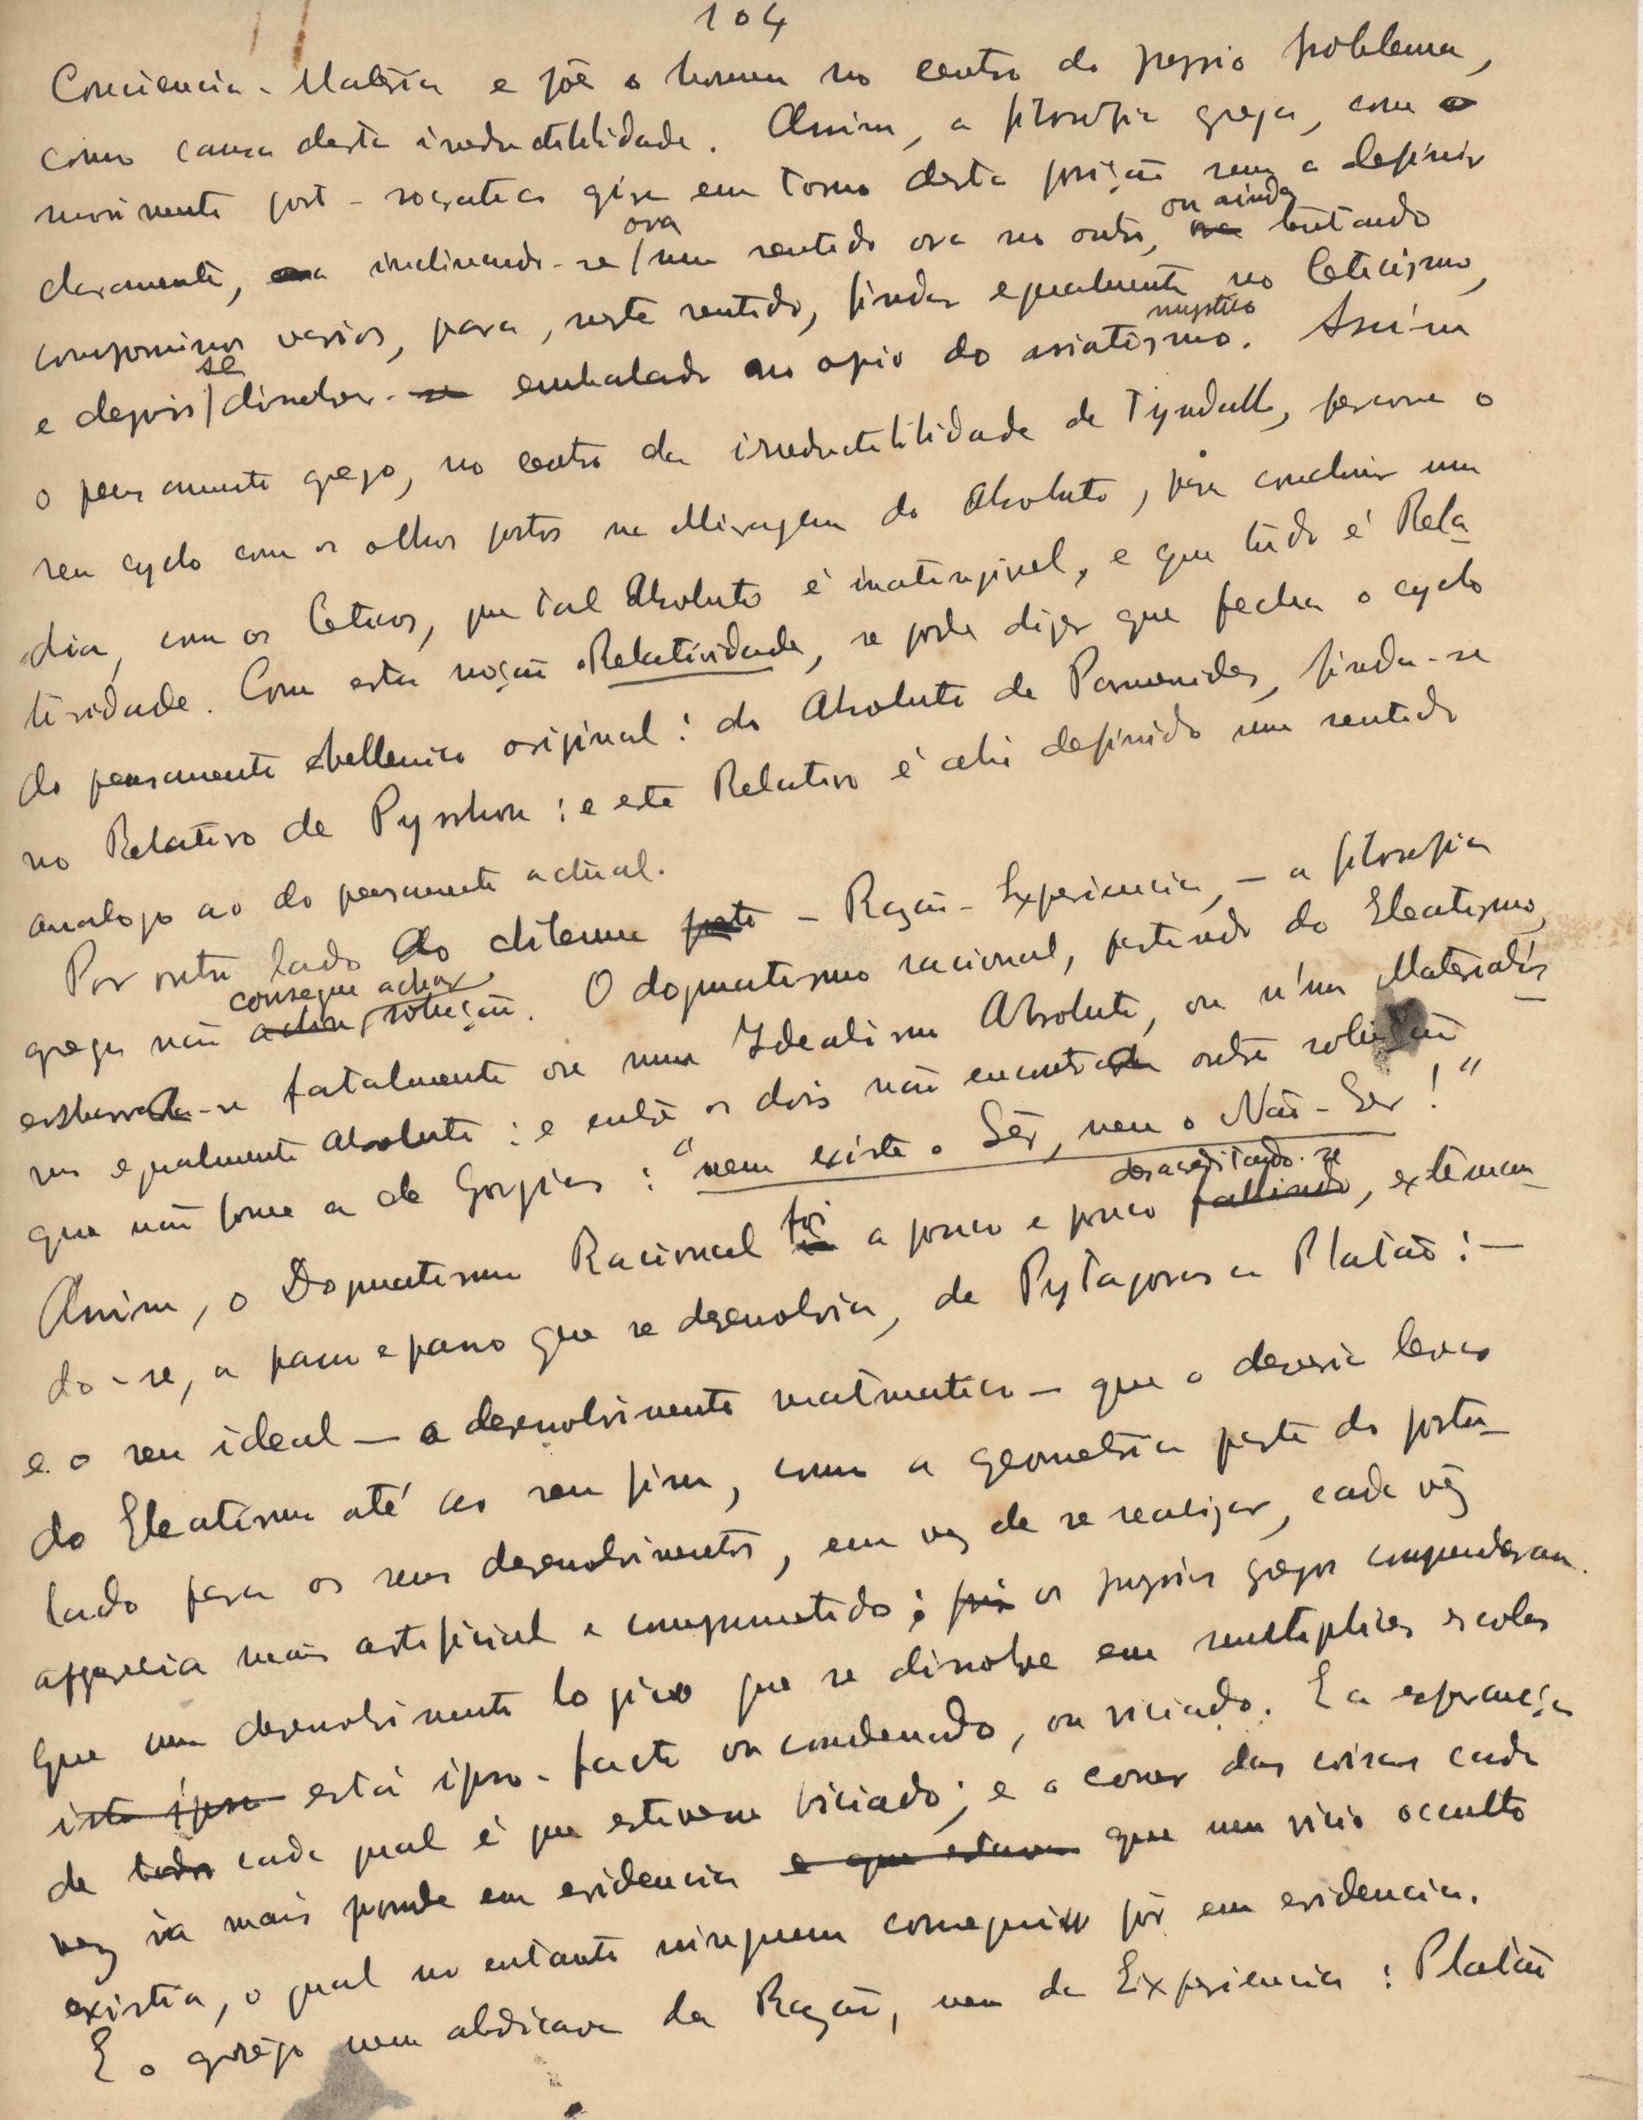 104
Consciencia-Materia e põe o homem no centro do proprio problema,
como causa desta irreductibilidade. Assim, a filosofia grega, com o
movimento post-socratico gira em torno desta posição sem a definir
claramente, inclinando-se ora num sentido ora no outro, ou ainda tentando
compromissos varios, para, neste sentido, findar egualmente no Ceticismo,
e depois se dissolver embalado no opio do asiatismo mystico. Assim
o pensamento grego, no centro da irreductibilidade de Tyndall, percorre o
seu cyclo com os olhos postos na Miragem do Absoluto, para concluir um
dia, com os Ceticos, que tal Absoluto é inatingivel, e que tudo é Rela-
tividade. Com esta noção Relatividade, se pode dizer que fecha o cyclo
do pensamento hellenico original: do Absoluto de Parmenides, finda-se
no Relativo de Pyrrhon: e este Relativo é ahi definido num sentido
analogo ao do pensamento actual.
Por outro lado do dilema - Razão-Experiencia, - a filosofia
grega não consegue achar solução. O dogmatismo racional, partindo do Eleatismo,
esbarra-se fatalmente ora num Idealismo Absoluto, ou n'um Materialis-
mo egualmente absoluto: e entre os dois não encontra outra solução
que não fosse a de Gorgias: "nem existe o Sêr, nem o Não-Ser!"
Assim, o Dogmatismo Racional foi a pouco e pouco desacreditando-se, exteman-
do-se, a passo e passo que se desenvolvia, de Pytagoras a Platão: -
e o seu ideal - o desenvolvimento matmatico - que o deveria levar
do Eleatismo até ao seu fim, como a geometria parte do postu-
lado para os seus desenvolvimentos, em vez de se realizar, cada vêz
apparecia mais artificial e compromettido; os proprios gregos comprenderam
que um desenvolvimento logico que se dissolve em multiplices escolas
está ipso-facto ou condenado, ou viciado. E a esperança
de cada qual é que estivesse viciado; e o correr das coisas cada
vez ia mais pondo em evidencia que um vicio occulto
existia, o qual no entanto ninguem conseguiu pôr em evidencia.
E o grego nem abdicava da Razão, nem da Experiencia: Platão